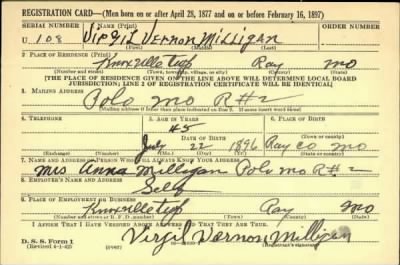 REGISTRATION CARD—(Men born on or after April 28, 1877 and on or before February 16, 1897)
SERIAL NUMBER 1. NAME (Print) ORDER NUMBER
U 108 Virgil Vernon Milligan
(First) (Middle) (Last)
2. PLACE OF RESIDENCE (Print)
Knoxville Twp Ray Mo
(Number and street) (Town, township, village, or city) (County) (State)
[THE PLACE OF RESIDENCE GIVEN ON THE LINE ABOVE WILL DETERMINE LOCAL BOARD
JURISDICTION; LINE 2 OF REGISTRATION CERTIFICATE WILL BE IDENTICAL]
3. MAILING ADDRESS
Polo Mo R#2
[Mailing address if other than place indicated on line 2. If same insert word same]
4. TELEPHONE 5. AGE IN YEARS 6. PLACE OF BIRTH
45
DATE OF BIRTH (Town or county)
July 22 1896 Ray co Mo
(Exchange) (Number) (Mo.) (Day) (Yr.) (State or country)
7. NAME AND ADDRESS OF PERSON WHO WILL ALWAYS KNOW YOUR ADDRESS
Mrs Anna Milligan Polo Mo R#2
8. EMPLOYER'S NAME AND ADDRESS
Self
9. PLACE OF EMPLOYMENT OR BUSINESS
Knoxville Twp Ray Mo
(Number and street or R. F. D. number) (Town) (County) (State)
I AFFIRM THAT I HAVE VERIFIED ABOVE ANSWERS AND THAT THEY ARE TRUE.
D. S. S. Form 1
(Revised 4-1-42) Virgil Vernon Milligan
(Registrant's signature)